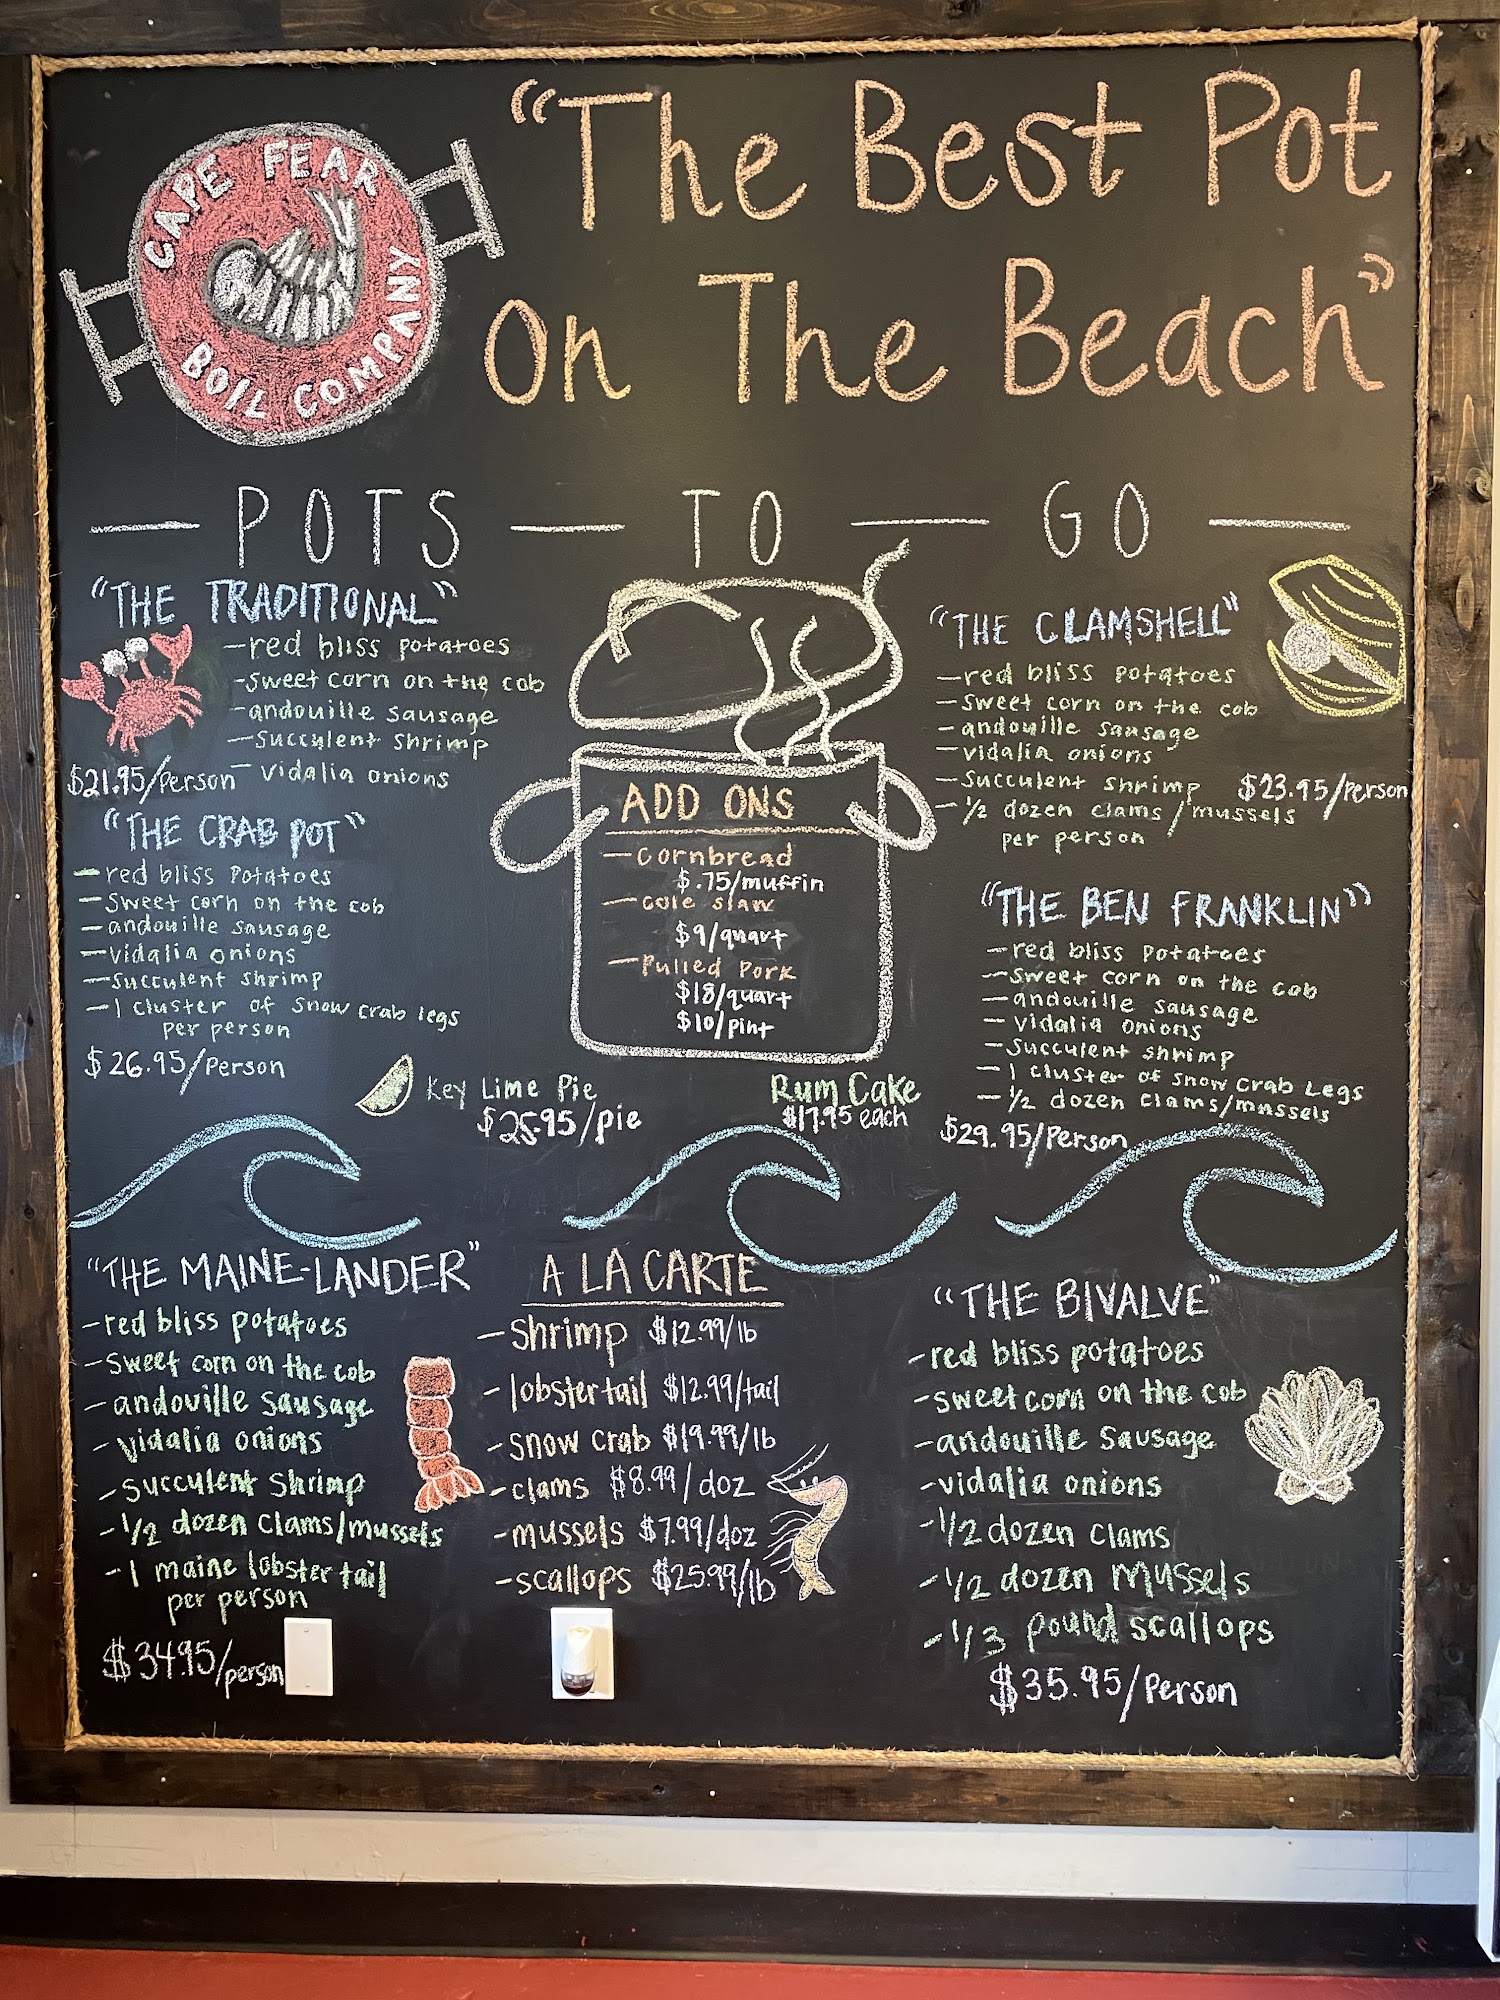 CAPE FEAR
BOIL COMPANY
"The Best Pot
On The Beach"
— POTS — TO — GO —
"THE TRADITIONAL"
- red bliss potatoes
- sweet corn on the cob
- andouille sausage
- succulent shrimp
- vidalia onions
$21.95/person
"THE CRAB POT"
- red bliss potatoes
- sweet corn on the cob
- andouille sausage
- vidalia onions
- succulent shrimp
- 1 cluster of snow crab legs
per person
$26.95/person
ADD ONS
- cornbread
$.75/muffin
- cole slaw
$9/quart
- Pulled Pork
$18/quart
$10/pint
Key Lime Pie
$25.95/pie
Rum Cake
$17.95 each
"THE CLAMSHELL"
- red bliss potatoes
- sweet corn on the cob
- andouille sausage
- vidalia onions
- succulent shrimp
- 1/2 dozen clams/mussels
per person
$23.95/person
"THE BEN FRANKLIN"
- red bliss potatoes
- sweet corn on the cob
- andouille sausage
- vidalia onions
- succulent shrimp
- 1 cluster of snow crab legs
- 1/2 dozen clams/mussels
$29.95/person
"THE MAINE-LANDER"
- red bliss potatoes
- sweet corn on the cob
- andoville sausage
- vidalia onions
- succulent shrimp
- 1/2 dozen clams/mussels
- 1 maine lobster tail
per person
$34.95/person
A LA CARTE
- shrimp $12.99/lb
- lobster tail $12.99/tail
- snow crab $19.99/lb
- clams $8.99/doz
- mussels $7.99/doz
- scallops $25.99/lb
"THE BIVALVE"
- red bliss potatoes
- sweet corn on the cob
- andouille sausage
- vidalia onions
- 1/2 dozen clams
- 1/2 dozen mussels
- 1/3 pound scallops
$35.95/person